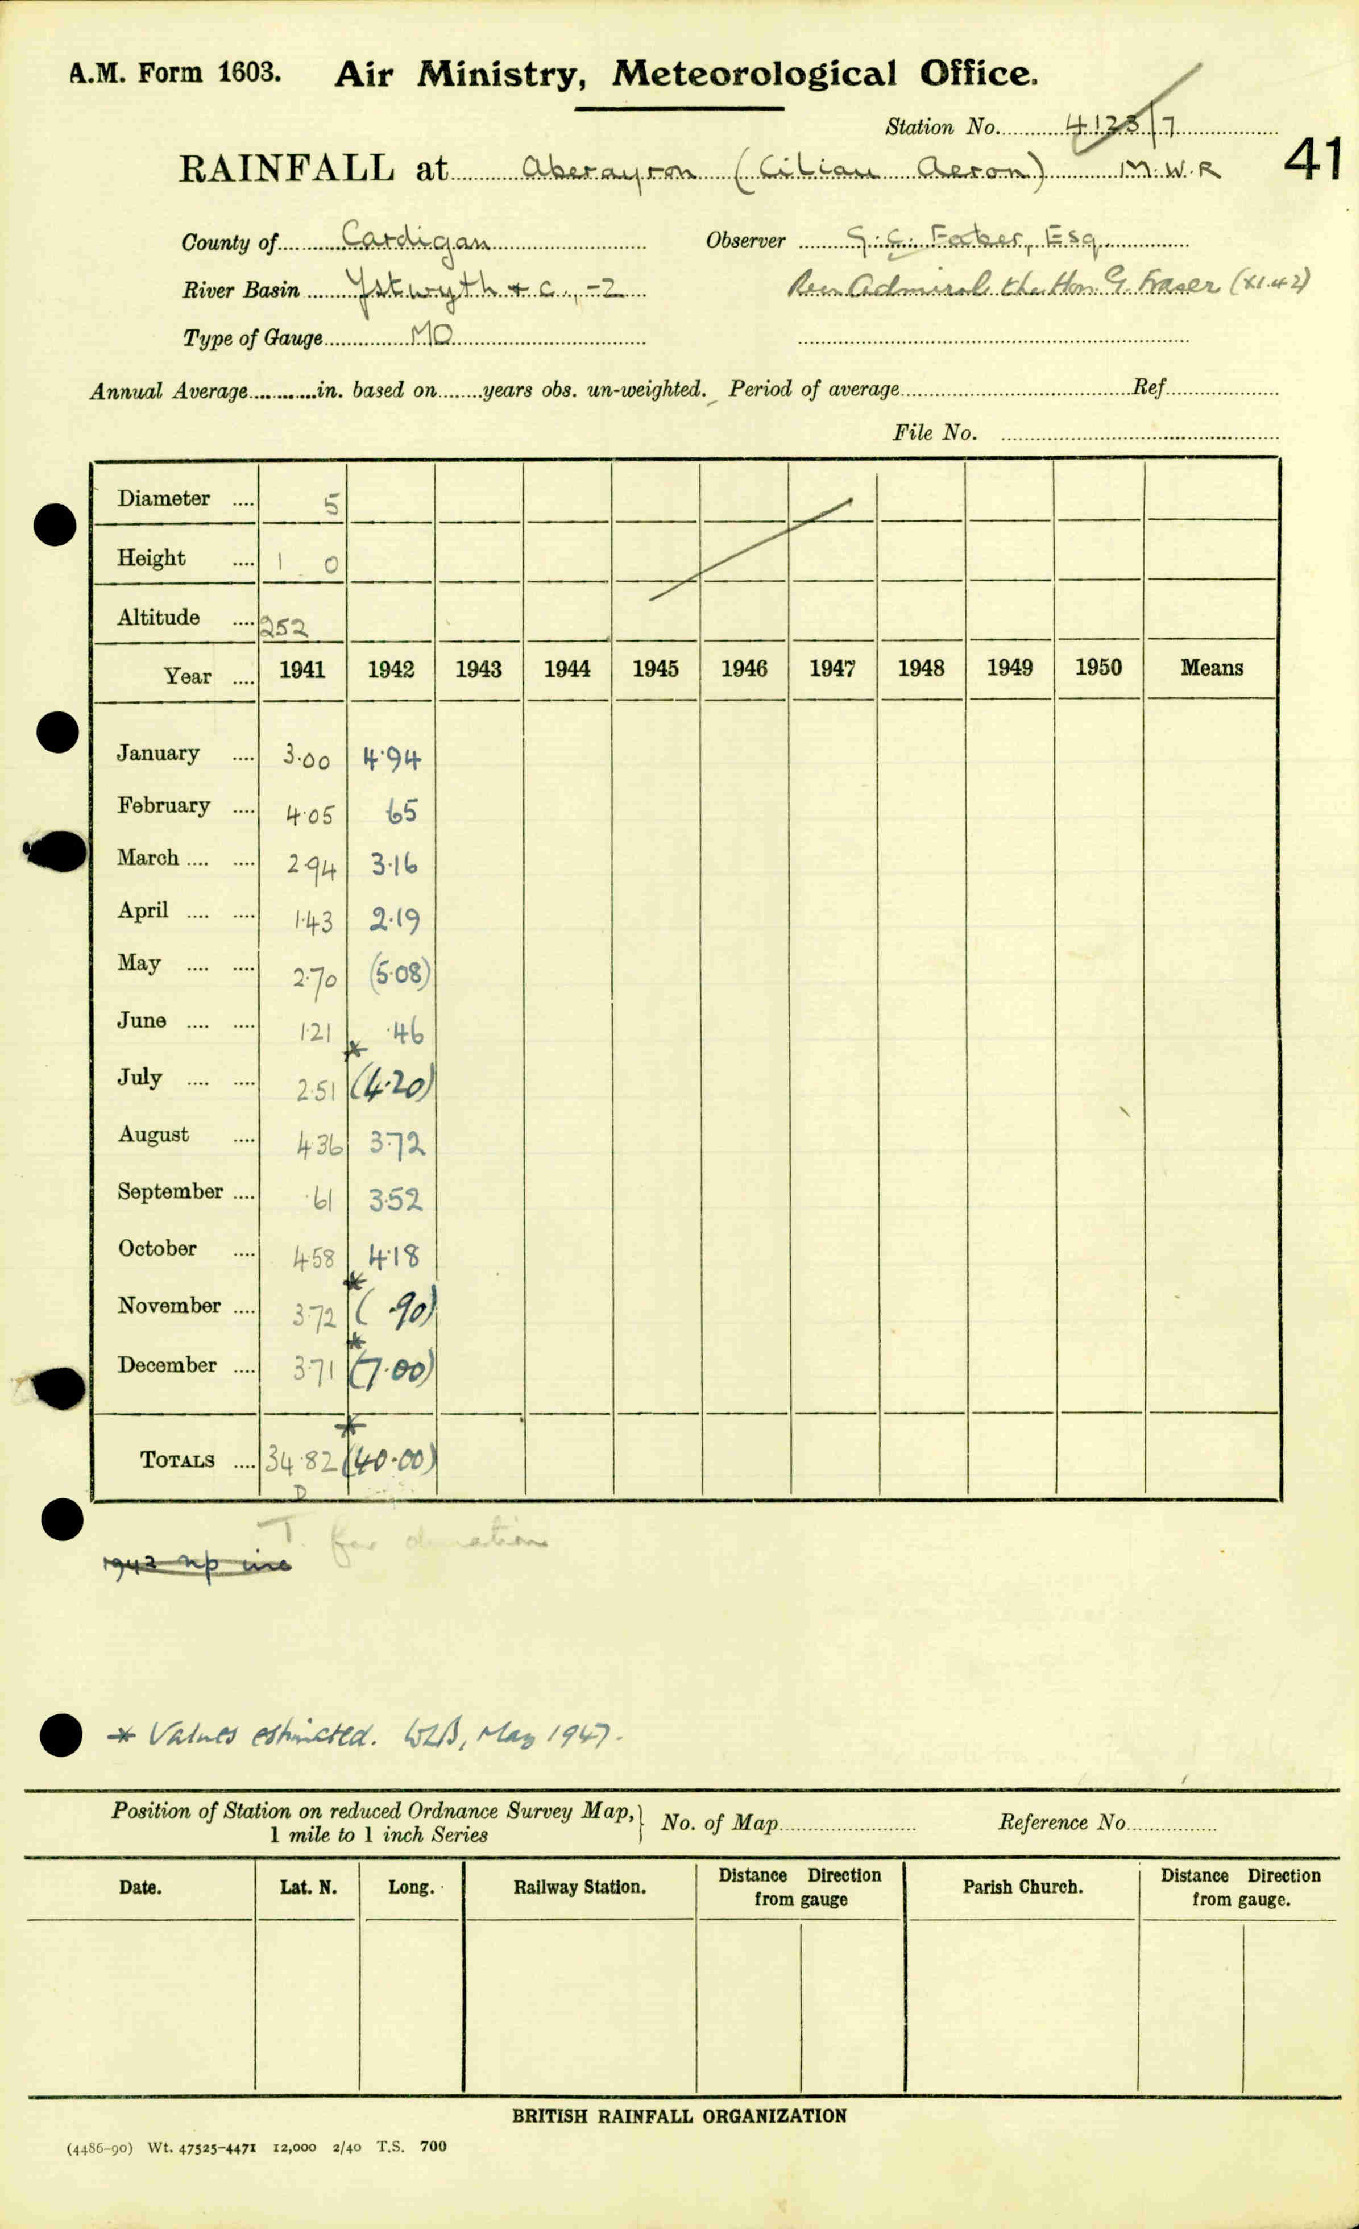 A.M. Form 1603. Air Ministry, Meteorological Office.
Station No. 4123/7
RAINFALL at Aberayron (Cilian Aeron) M.W.R
41
County of Cardigan Observer G. C. Faber, Esq
River Basin Ystwyth & c., -2 Rear Admiral the Hon. G. Fraser (XI.42)
Type of Gauge MO
Annual Average in. based on years obs. un-weighted. Period of average Ref
File No.
Diameter 5
Height 1 0
Altitude 252
Year 1941 1942 1943 1944 1945 1946 1947 1948 1949 1950 Means
January 3.00 4.94
February 4.05 65
March 2.94 3.16
April 1.43 2.19
May 2.70 (5.08)
June 1.21 .46
July 2.51 *(4.20)
August 4.36 3.72
September .61 3.52
October 4.58 4.18
November 3.72 *( .90)
December 3.71 *(7.00)
TOTALS 34.82 *(40.00)
D
T. for duration
1942
* Values estimated. WLB, May 1947.
Position of Station on reduced Ordnance Survey Map, } No. of Map Reference No
1 mile to 1 inch Series
Date. Lat. N. Long. Railway Station. Distance Direction from gauge Parish Church. Distance Direction from gauge.
BRITISH RAINFALL ORGANIZATION
(4486-90) Wt. 47525-4471 12,000 2/40 T.S. 700